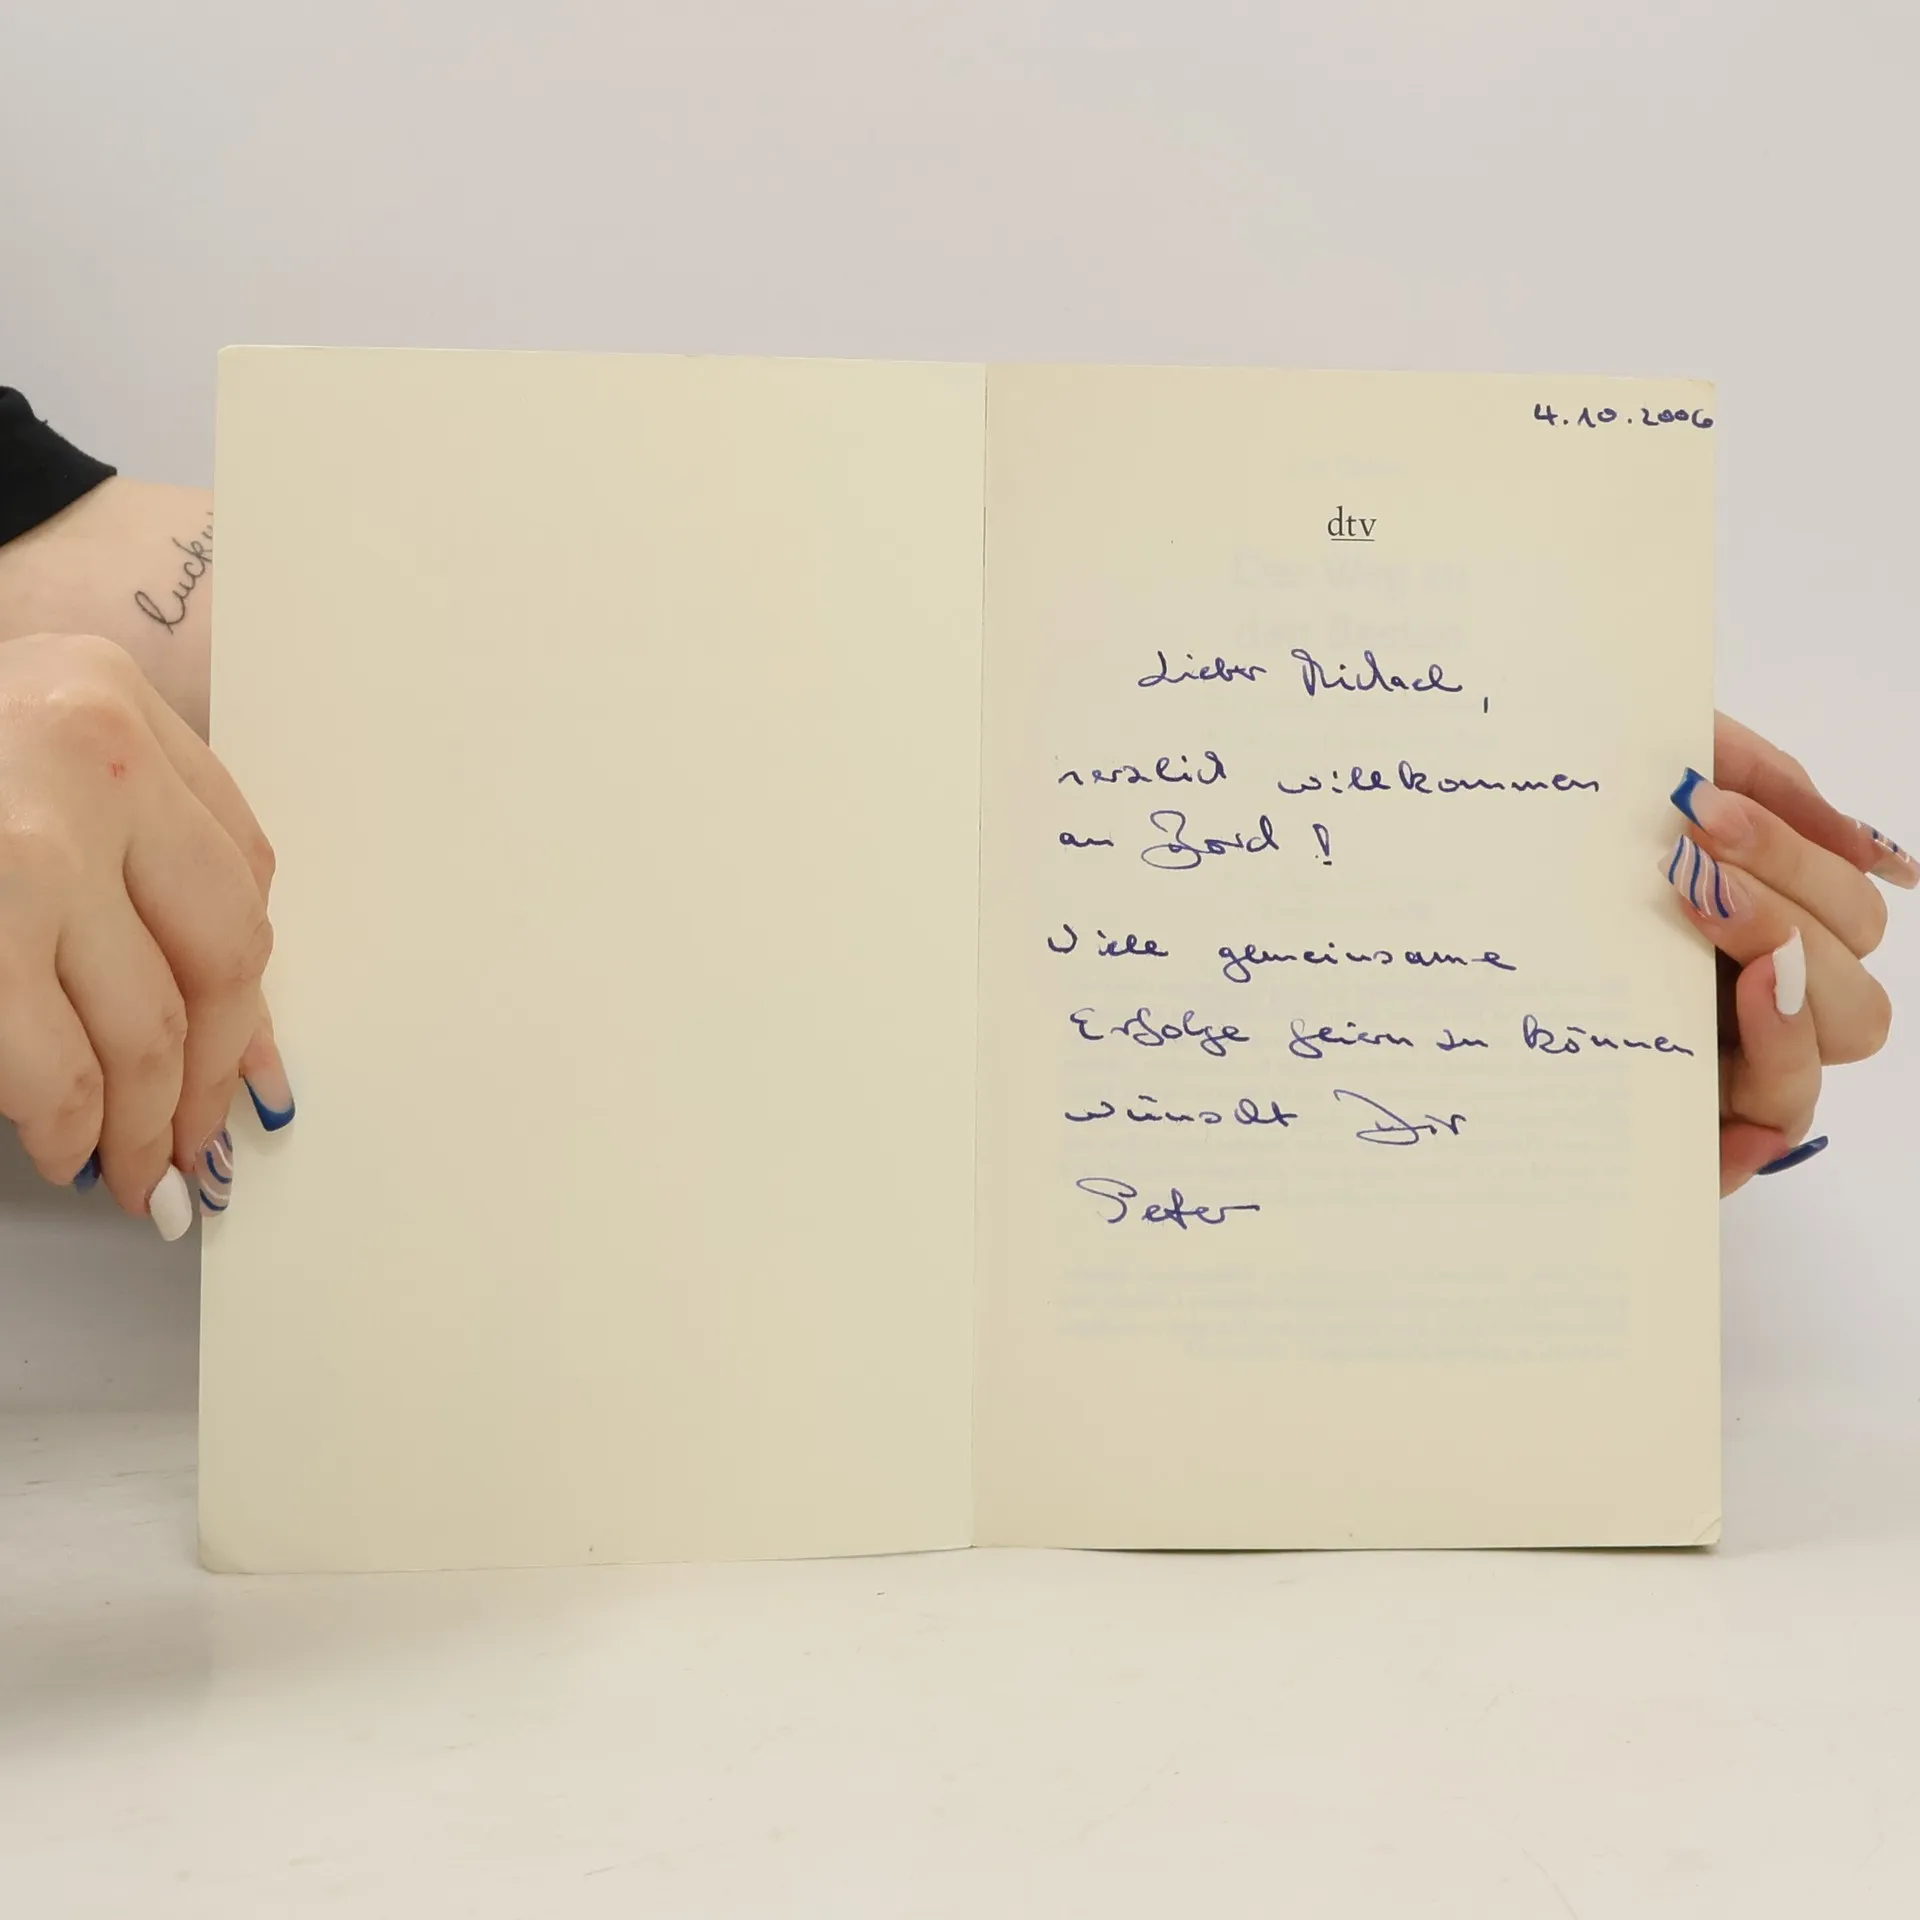 4.10.2006
dtv
lucky
Lieber Michael,
herzlich willkommen
an Bord!
Viele gemeinsame
Erfolge feiern zu können
wünscht Dir
Peter